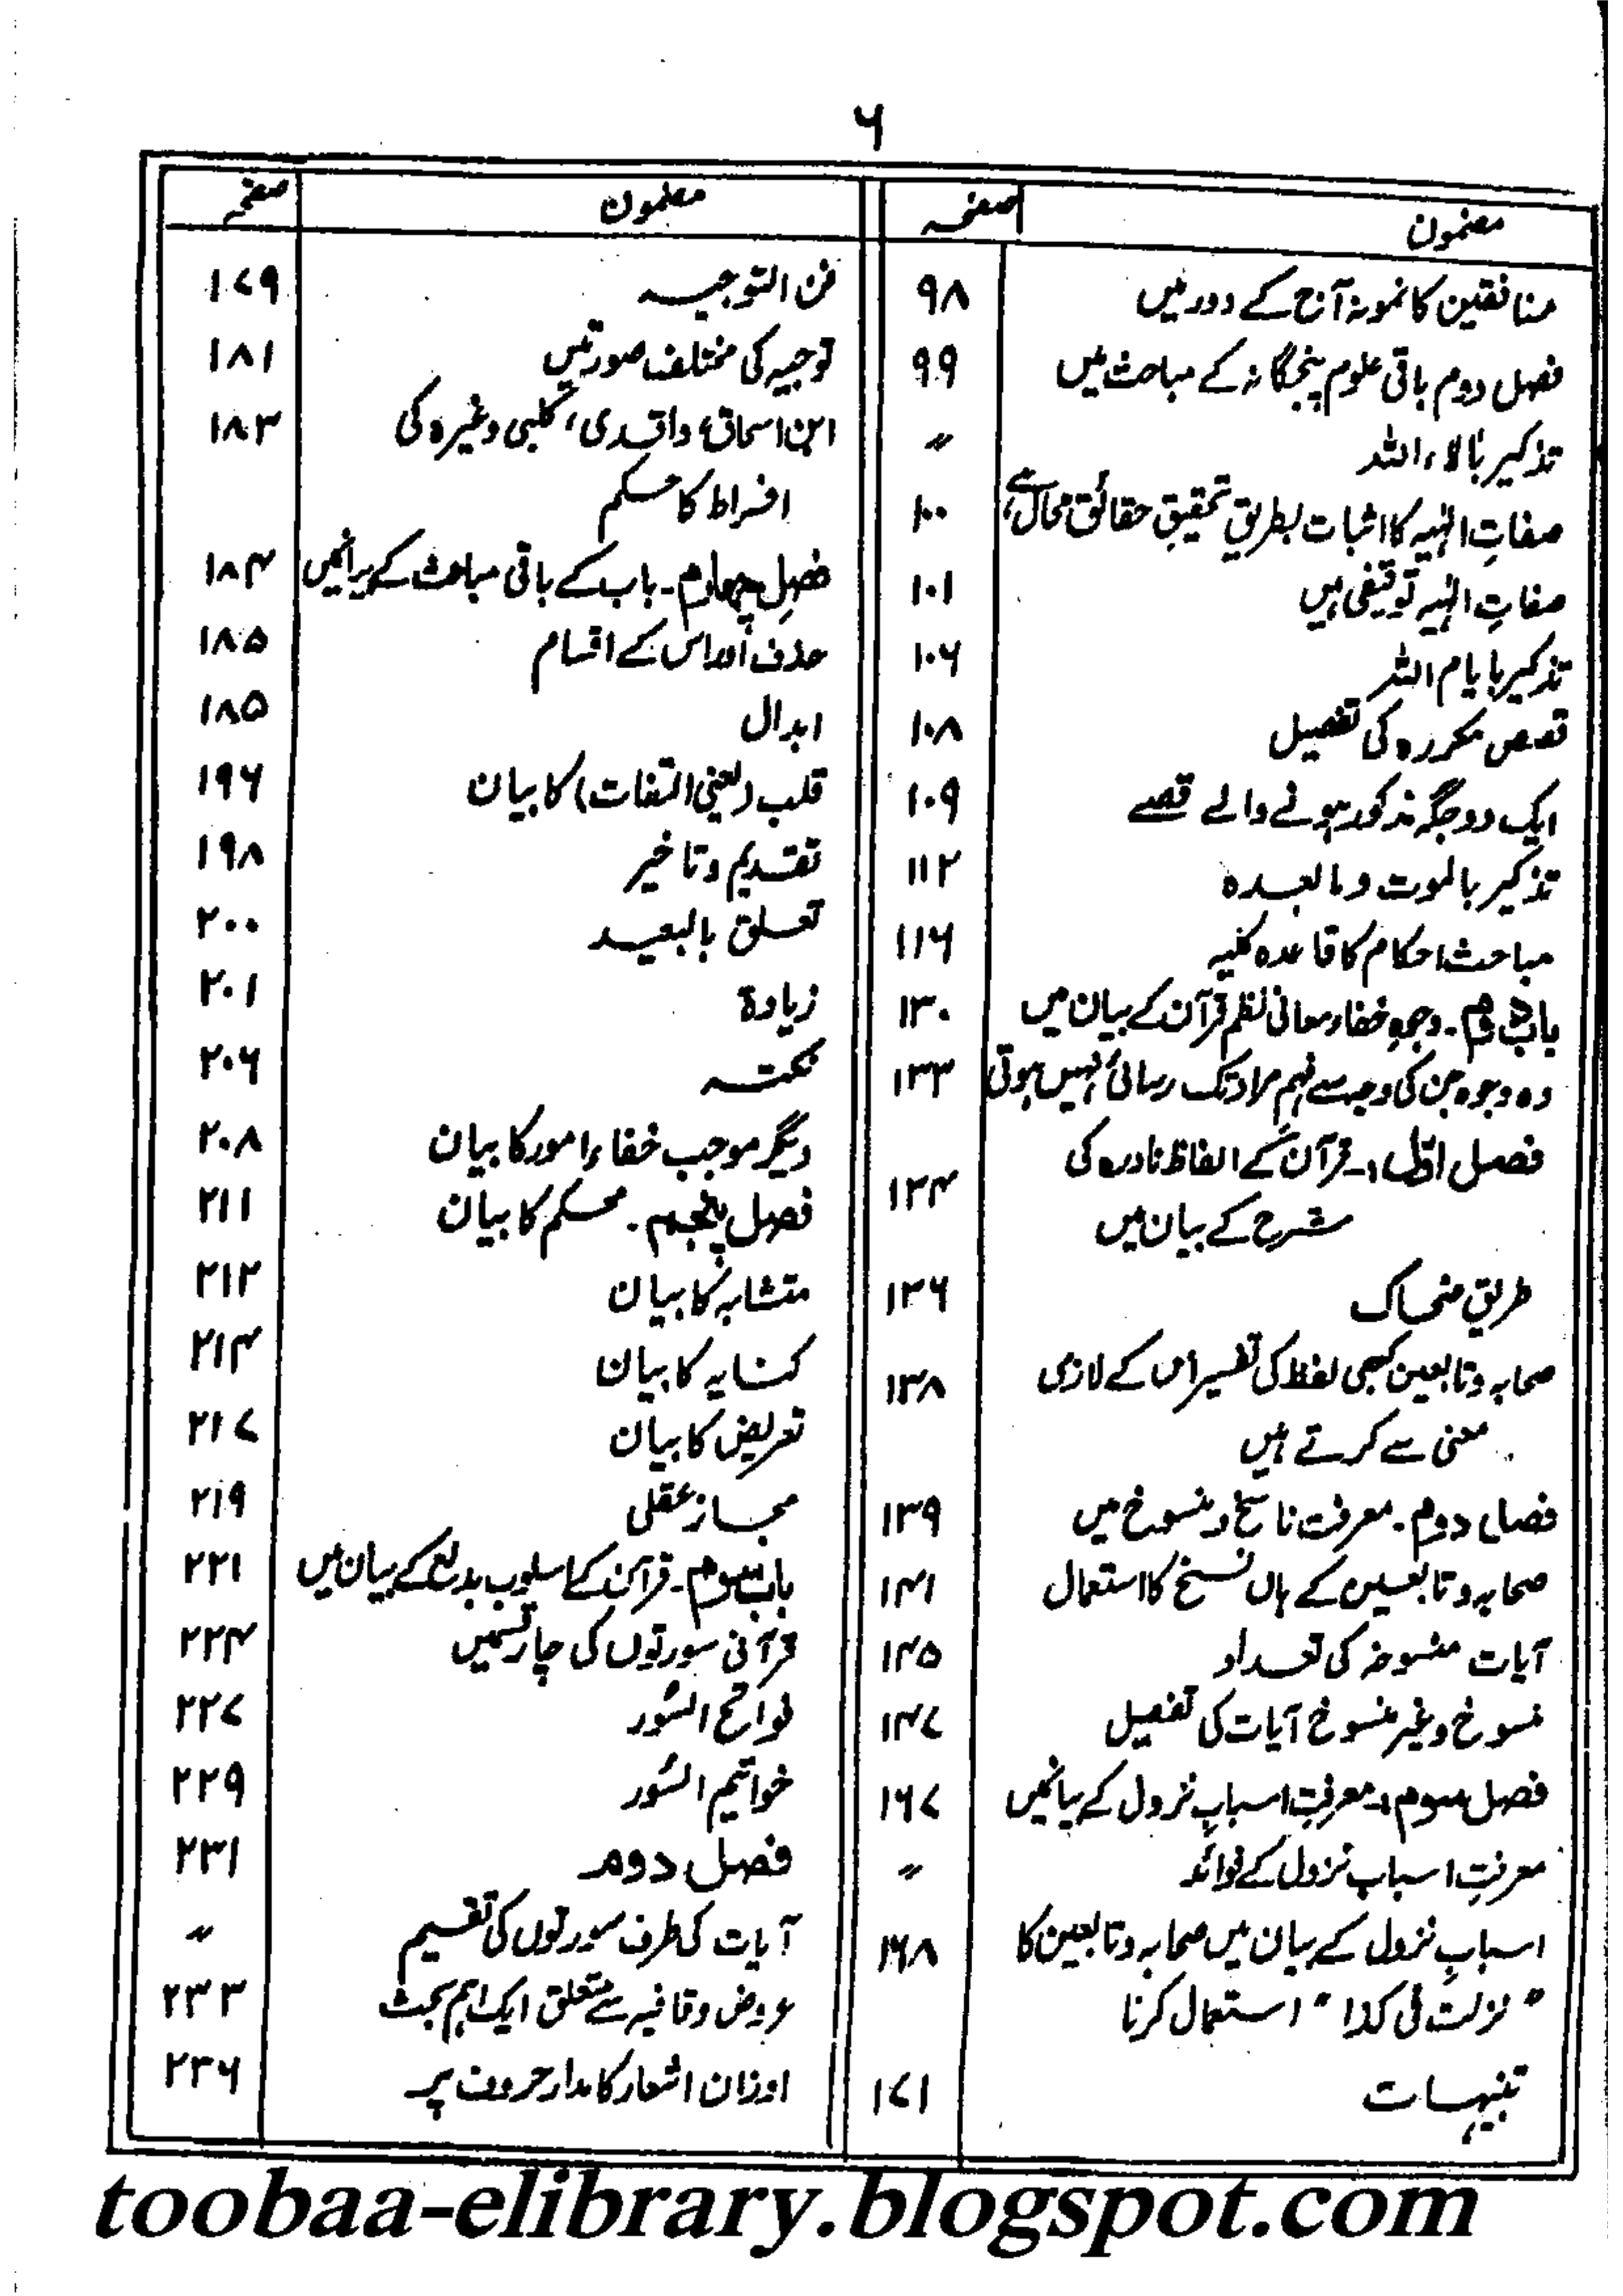 ۶
مضمون صفحہ
منافقین کا نمونہ آج کے دور میں ۹۸
فصل دوم باقی علوم پنجگانہ کے مباحث میں ۹۹
تذکیر بآلاء اللہ 〃
صفاتِ الٰہیہ کا اثبات بطریق تحقیق حقائق محال ہے ۱۰۰
صفاتِ الٰہیہ توقیفی ہیں ۱۰۱
تذکیر بایام اللہ ۱۰۶
قصص مکررہ کی تفصیل ۱۰۸
ایک دو جگہ مذکور ہونے والے قصے ۱۰۹
تذکیر بالموت و مابعدہ ۱۱۲
مباحث احکام کا قاعدہ کلیہ ۱۱۶
باب دوم ۔ وجوہِ خفاء معانی نظم قرآن کے بیان میں ۱۳۰
وہ وجوہ جن کی وجہ سے فہم مراد تک رسائی نہیں ہوتی ۱۳۳
فصل اول :۔ قرآن کے الفاظ نادرہ کی
شرح کے بیان میں ۱۳۴
طریق ضحاک ۱۳۶
صحابہ و تابعین کبھی لفظ کی تفسیر اس کے لازمی ۱۳۸
معنی سے کرتے ہیں
فصل دوم ۔ معرفت ناسخ و منسوخ میں ۱۳۹
صحابہ و تابعین کے ہاں نسخ کا استعمال ۱۴۱
آیات منسوخہ کی تعداد ۱۴۵
منسوخ و غیر منسوخ آیات کی تفصیل ۱۴۷
فصل سوم :۔ معرفتِ اسبابِ نزول کے بیان میں ۱۶۷
معرفتِ اسباب نزول کے فوائد 〃
اسبابِ نزول کے بیان میں صحابہ و تابعین کا ۱۶۸
"نزلت فی کذا" استعمال کرنا
تنبیہات ۱۷۱
مضمون صفحہ
فن التوجیہ ۱۷۹
توجیہ کی مختلف صورتیں ۱۸۱
ابن اسحاق، واقدی، کلبی وغیرہ کی ۱۸۳
افراط کا حکم
فصل چہارم ۔ باب کے باقی مباحث کے بیان میں ۱۸۴
حذف اور اس کے اقسام ۱۸۵
ابدال ۱۸۵
قلب (یعنی التفات) کا بیان ۱۹۶
تقدیم و تاخیر ۱۹۸
تعلق بالبعید ۲۰۰
زیادۃ ۲۰۱
نکتہ ۲۰۶
دیگر موجب خفاء امور کا بیان ۲۰۸
فصل پنجم ۔ محکم کا بیان ۲۱۱
متشابہ کا بیان ۲۱۲
کنایہ کا بیان ۲۱۴
تعریض کا بیان ۲۱۷
مجاز عقلی ۲۱۹
باب سوم ۔ قرآن کے اسلوب بدیع کے بیان میں ۲۲۱
قرآنی سورتوں کی چار قسمیں ۲۲۴
فواتح السُّور ۲۲۷
خواتیم السُّور ۲۲۹
فصل دوم ۲۳۱
آیات کی طرف سورتوں کی تقسیم 〃
عروض و قافیہ سے متعلق ایک اہم بحث ۲۳۳
اوزان اشعار کا مدار حروف پر ۲۳۶
toobaa-elibrary.blogspot.com